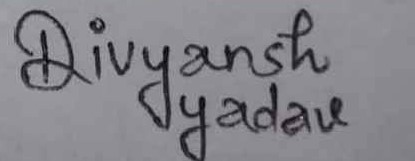 Divyansh
yadav